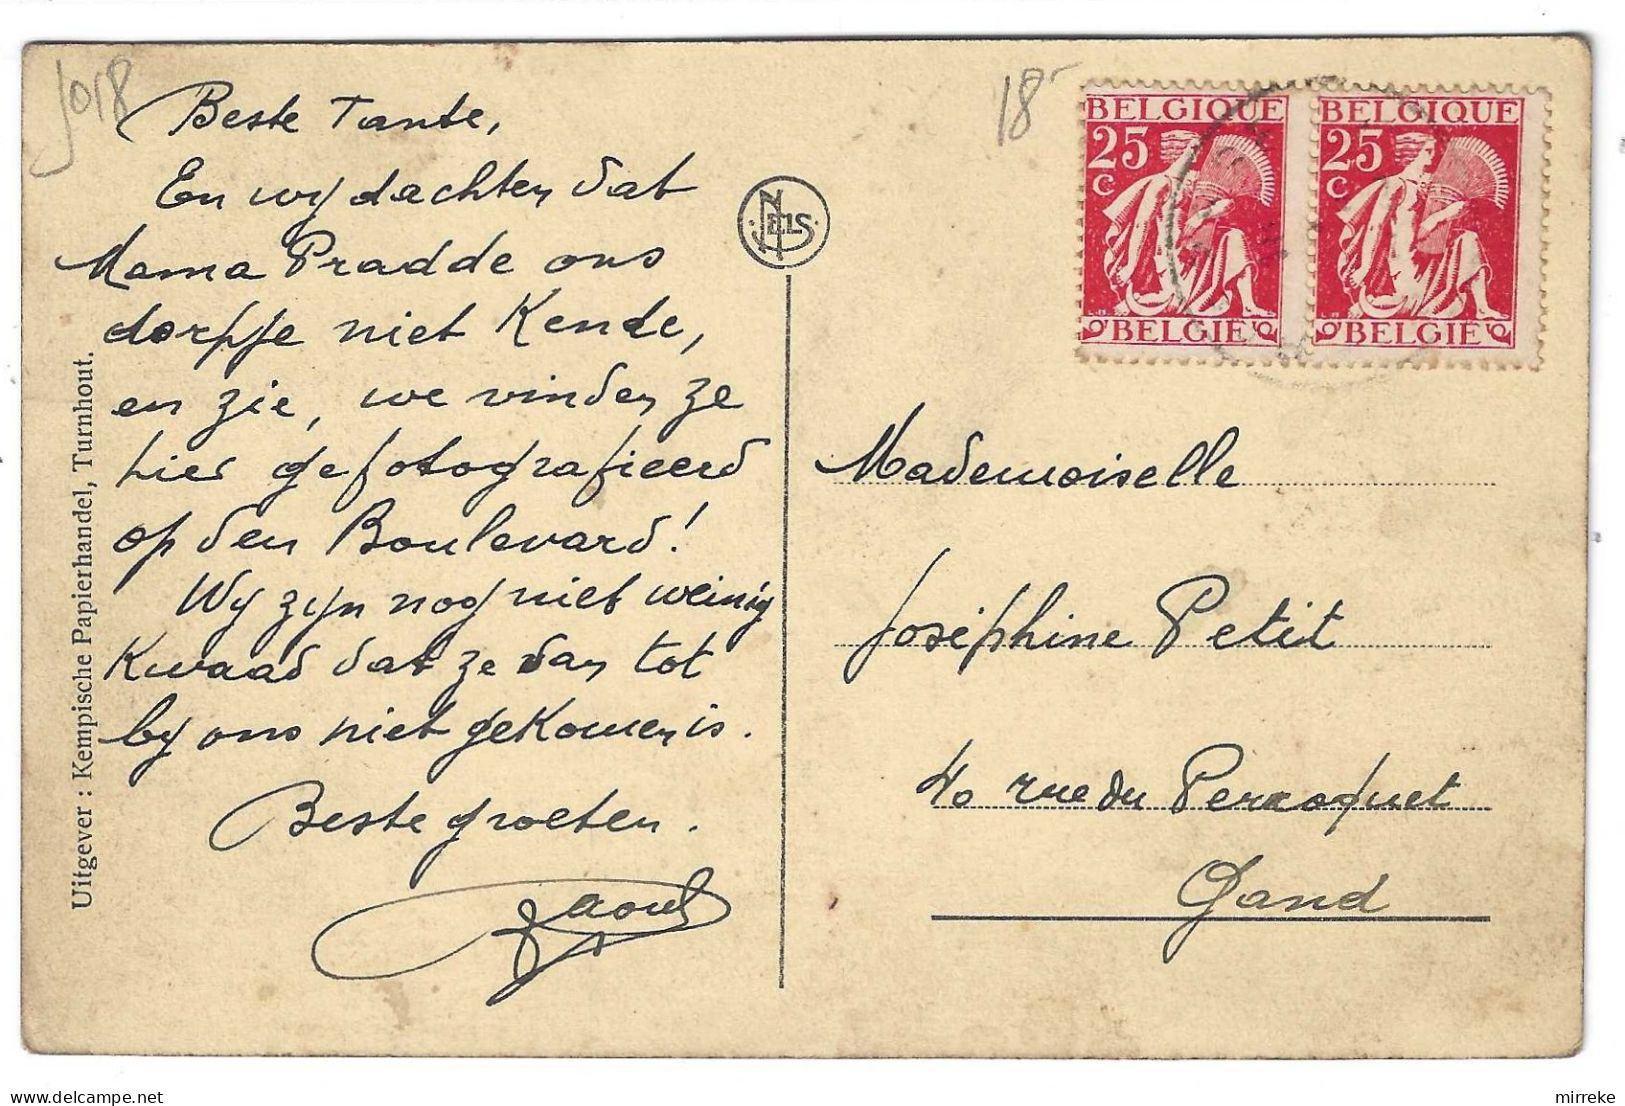 J018
Beste Tante,
En wij dachten dat
Mama Pradde ons
dorpje niet kende,
en zie, we vinden ze
hier gefotografieerd
op den Boulevard!
Wij zijn nog niet weinig
kwaad dat ze dan tot
bij ons niet gekomen is.
Beste groeten.
Raoul
Uitgever : Kempische Papierhandel, Turnhout.
NELS
18-
BELGIQUE
25
C
BELGIE
BELGIQUE
25
C
BELGIE
Mademoiselle
Joséphine Petit
40 rue du Perroquet
Gand
mirreke